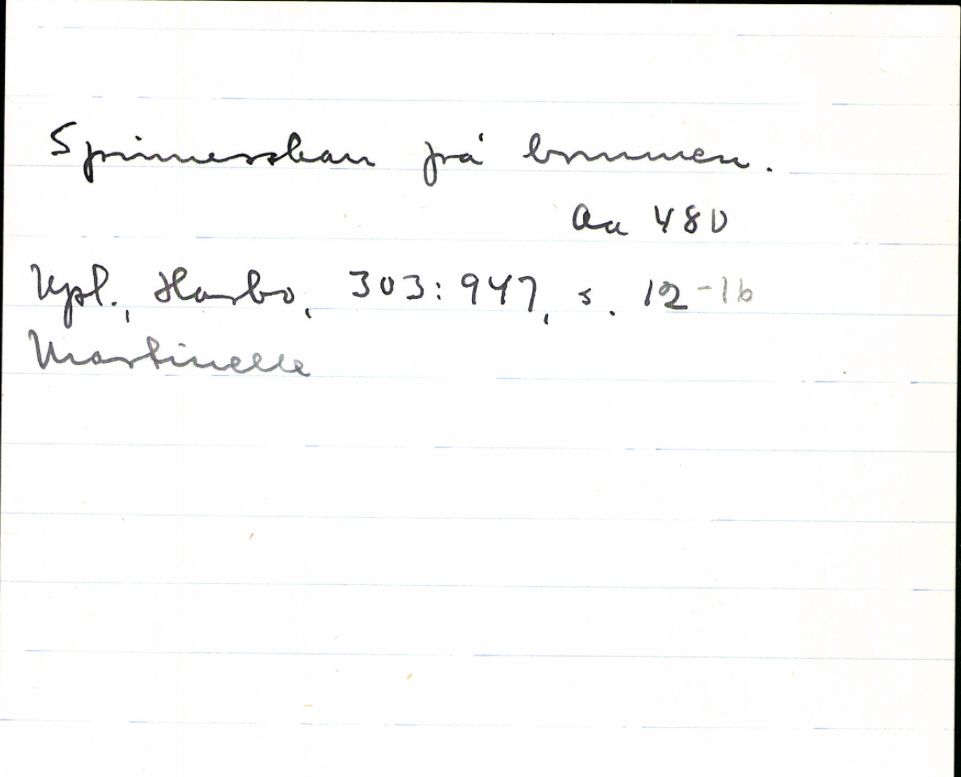 Spinnerskan på brunnen.
Aa 480
Upl., Harbo, 303:947, s. 12-16
Martinelle